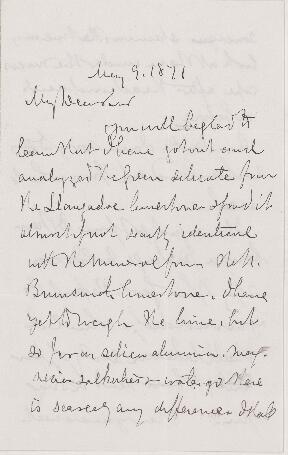 May 9. 1871
My Dear Sir
you will be glad to
learn that I have got out and
analyzed the green silicate from
the Llangadoc limestone & find it
almost if not exactly identical
with the mineral from the N.
Brunswick limestone. I have
yet to weigh the lime, but
so far as silica alumina. mag-
nesia alkalies & water go there
is scarcely any difference. I shall